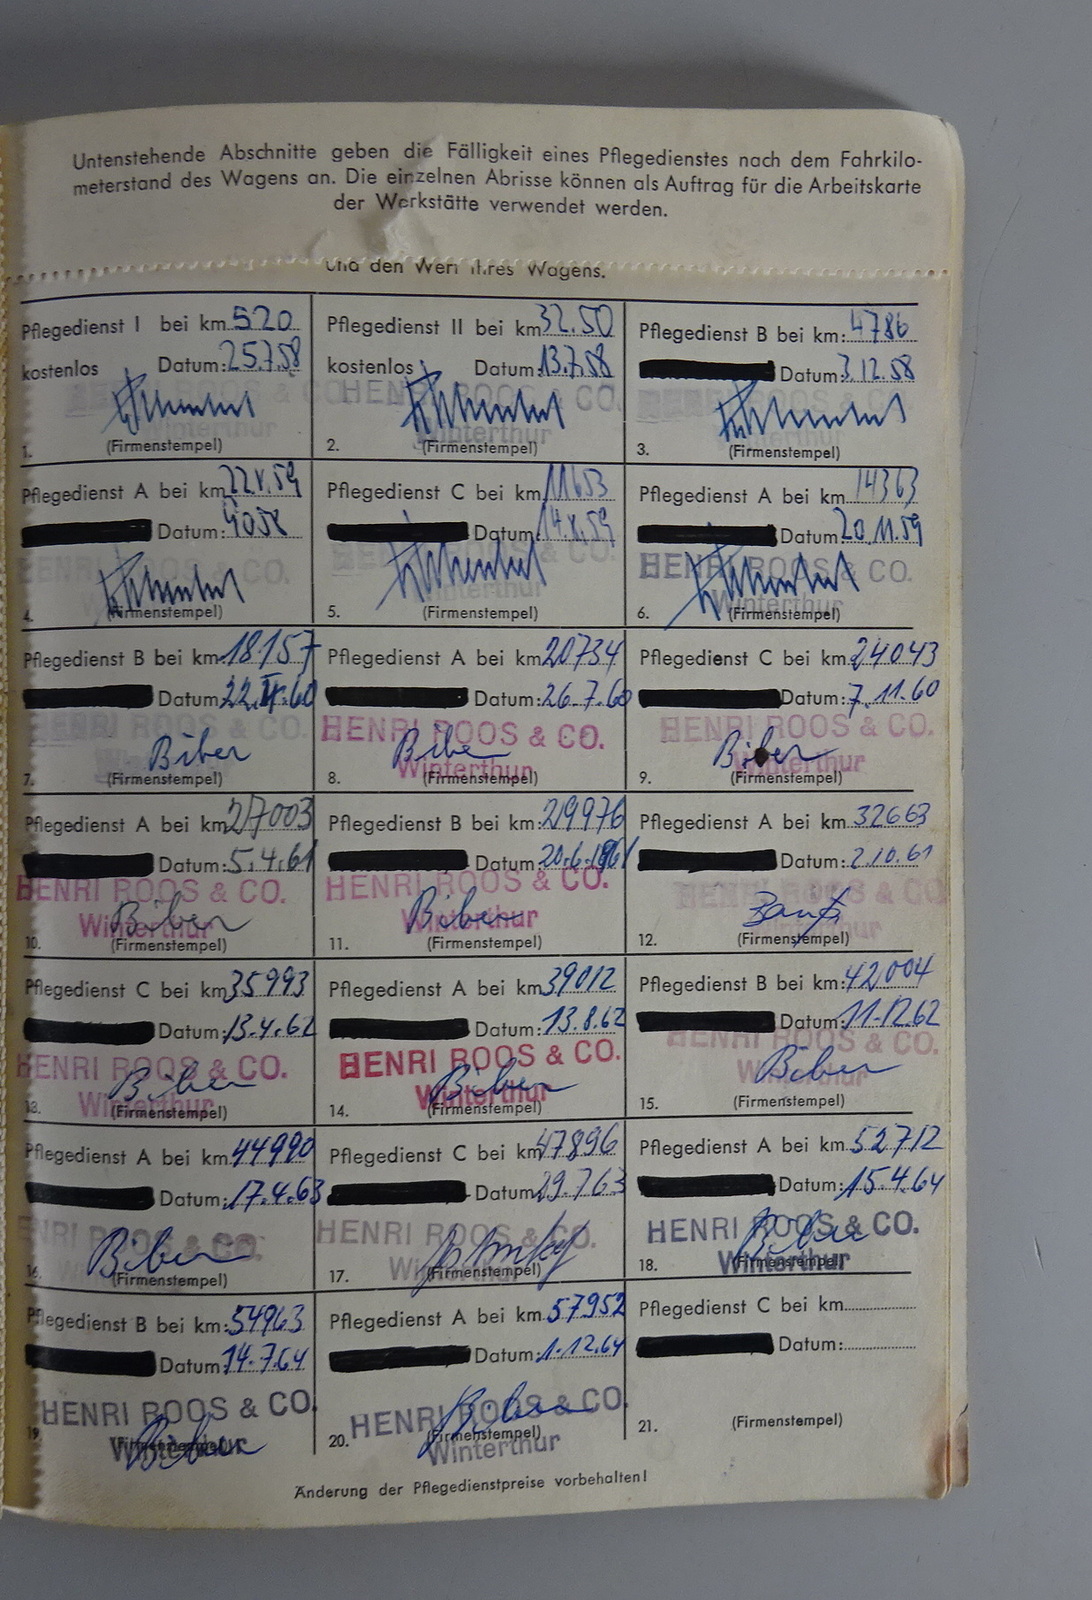 Untenstehende Abschnitte geben die Fälligkeit eines Pflegedienstes nach dem Fahrkilo-
meterstand des Wagens an. Die einzelnen Abrisse können als Auftrag für die Arbeitskarte
der Werkstätte verwendet werden.
und den Wert Ihres Wagens.
Pflegedienst I bei km 520
kostenlos Datum: 25.7.58
HENRI ROOS & CO.
Winterthur
1. (Firmenstempel)
Pflegedienst II bei km 32.50
kostenlos Datum: 13.7.58
HENRI ROOS & CO.
Winterthur
2. (Firmenstempel)
Pflegedienst B bei km: 4786
Datum: 3.12.58
3. (Firmenstempel)
Pflegedienst A bei km
Datum:
HENRI ROOS & CO.
4. (Firmenstempel)
Pflegedienst C bei km 11653
Datum: 14.8.59
HENRI ROOS & CO.
Winterthur
5. (Firmenstempel)
Pflegedienst A bei km 14363
Datum: 20.11.59
HENRI ROOS & CO.
Winterthur
6. (Firmenstempel)
Pflegedienst B bei km 18157
Datum: 22.
HENRI ROOS & CO.
Biber
7. (Firmenstempel)
Pflegedienst A bei km 20734
Datum: 26.7.60
HENRI ROOS & CO.
Biber
Winterthur
8. (Firmenstempel)
Pflegedienst C bei km 24043
Datum: 7.11.60
HENRI ROOS & CO.
Biber
Winterthur
9. (Firmenstempel)
Pflegedienst A bei km 27003
Datum: 5.4.61
HENRI ROOS & CO.
Biber
Winterthur
10. (Firmenstempel)
Pflegedienst B bei km: 29976
Datum: 20.6.1961
HENRI ROOS & CO.
Biber
Winterthur
11. (Firmenstempel)
Pflegedienst A bei km 32663
Datum: 2.10.61
HENRI ROOS & CO.
Winterthur
12. (Firmenstempel)
Pflegedienst C bei km 35993
Datum: 13.4.62
HENRI ROOS & CO.
Biber
Winterthur
13. (Firmenstempel)
Pflegedienst A bei km 39012
Datum: 13.8.62
HENRI ROOS & CO.
Biber
Winterthur
14. (Firmenstempel)
Pflegedienst B bei km: 42004
Datum: 11.12.62
HENRI ROOS & CO.
Biber
Winterthur
15. (Firmenstempel)
Pflegedienst A bei km 44990
Datum: 17.4.63
HENRI ROOS & CO.
Biber
16. (Firmenstempel)
Pflegedienst C bei km 47896
Datum 29.7.63
HENRI ROOS & CO.
Winterthur
17. (Firmenstempel)
Pflegedienst A bei km 52712
Datum: 15.4.64
HENRI ROOS & CO.
Biber
Winterthur
18. (Firmenstempel)
Pflegedienst B bei km: 54963
Datum: 14.7.64
HENRI ROOS & CO.
Biber
Winterthur
19. (Firmenstempel)
Pflegedienst A bei km 57952
Datum: 1.12.64
HENRI ROOS & CO.
Biber
Winterthur
20. (Firmenstempel)
Pflegedienst C bei km
Datum:
21. (Firmenstempel)
Änderung der Pflegedienstpreise vorbehalten!